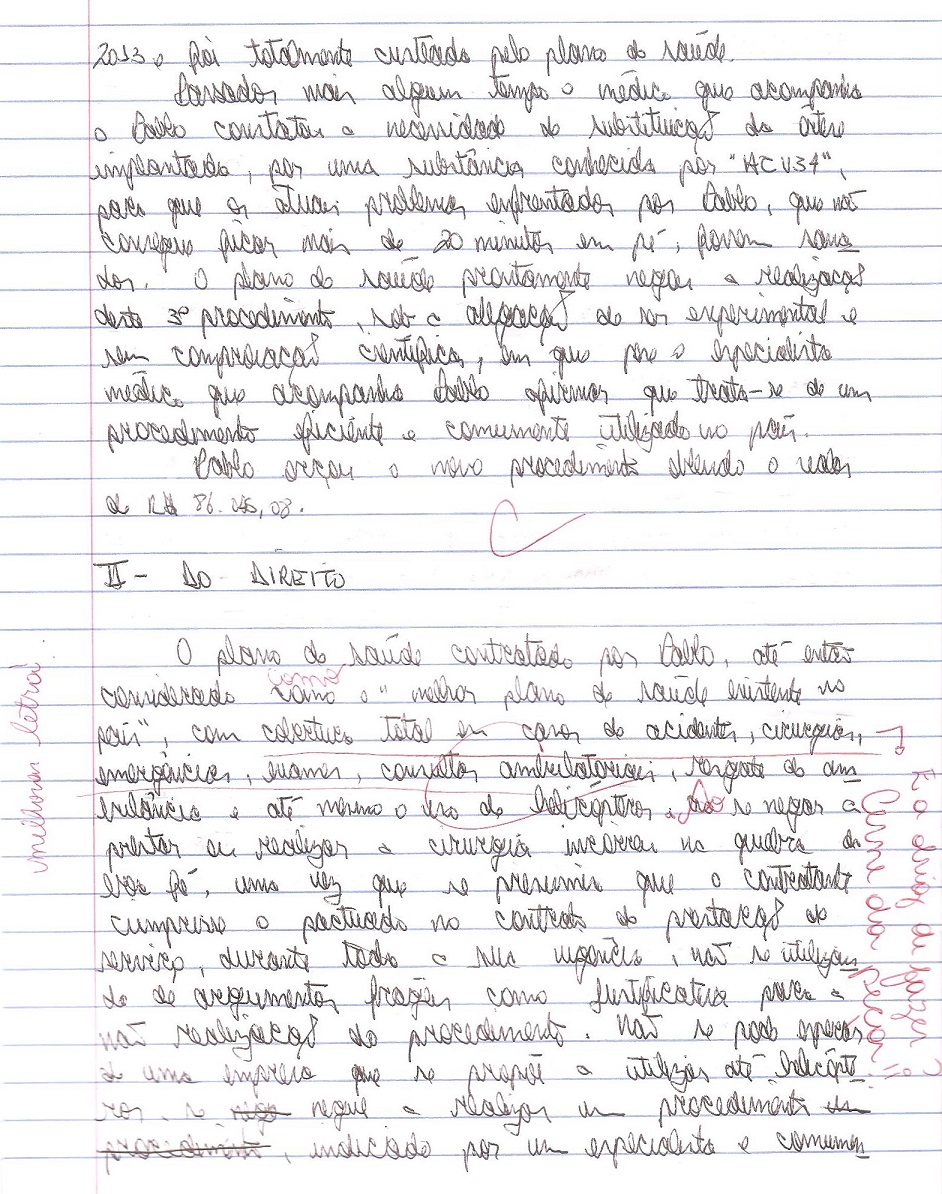 2013 e foi totalmente custeado pelo plano de saúde.
Passados mais algum tempo o médico que acompanha
o Pablo constatou a necessidade de substituição da
implantada, por uma substância conhecida por "ACV34",
para que os atuais problemas enfrentados por Pablo, que não
consegue ficar mais de 20 minutos em pé, fossem sana
dos. O plano de saúde prontamente negou a realização
deste 3º procedimento, sob a alegação de ser experimental e
sem comprovação científica, em que pese o especialista
médico que acompanha Pablo afirmar que trata-se de um
procedimento eficiente e comumente utilizado no país.
Pablo orçou o novo procedimento obtendo o valor
de R$ 86.
II - DO DIREITO
O plano de saúde contratado por Pablo, até então
considerado como o "melhor plano de saúde existente no
como
país", com cobertura total em casos de acidentes, cirurgias,
emergências, exames, consultas ambulatoriais, resgate de am
bulância e até mesmo o uso de helicópteros, ao se negar a
prestar ou realizar a cirurgia incorreu na quebra da
boa fé, uma vez que se presumia que o contratante
cumprisse o pactuado no contrato de prestação de
serviço, durante toda a sua vigência, não se utilizan
do de argumentos frágeis como justificativa para a
não realização do procedimento. Não se pode esperar
de uma empresa que se propõe a utilizar até helicópte
ros, se negue a realizar um procedimento
procedimento, indicado por um especialista e comumen
melhorar letra!
E a obrig de fazer?
Cerne da peça!!